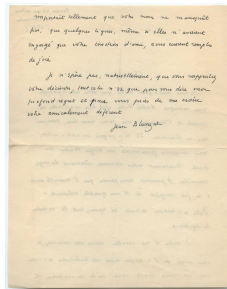 important tellement que votre nom ne manquât
pas, que quelques lignes, même si elles n'avaient
engagé que votre d'ami, nous eussent remplis
de joie.
Je n'espère pas, naturellement, que vous
votre décision, tout cela n'est que pour vous dire mon
profond regret et je vous prie de me croire
votre amicalement déférent
Jean